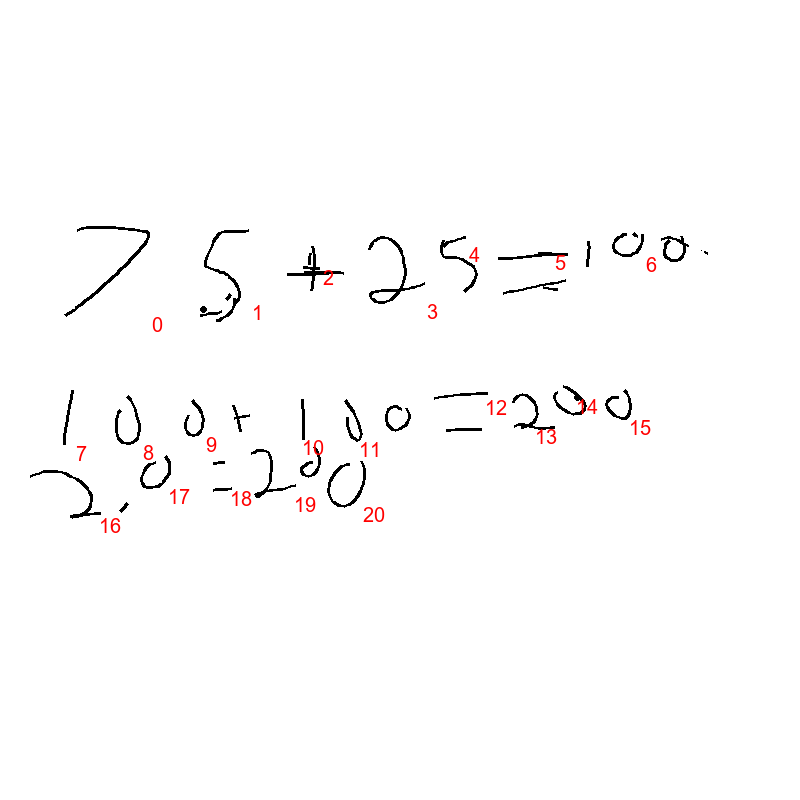 75+25=100.
0 1 2 3 4 5 6
100+100=200
7 8 9 10 11 12 13 14 15
2.0=200
16 17 18 19 20